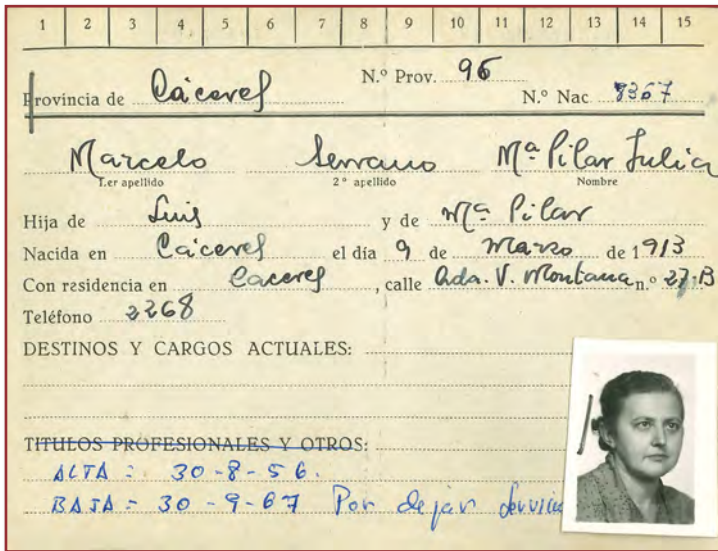 1 2 3 4 5 6 7 8 9 10 11 12 13 14 15
Provincia de Cáceres N.º Prov. 96 N.º Nac 8367
Marcelo Serrano Mª Pilar Julia
1.er apellido 2º apellido Nombre
Hija de Luis y de Mª Pilar
Nacida en Cáceres el día 9 de Marzo de 1913
Con residencia en Caceres, calle Ada. V. Montaña n.º 27-B
Teléfono 2268
DESTINOS Y CARGOS ACTUALES:
TITULOS PROFESIONALES Y OTROS:
ALTA = 30-8-56.
BAJA = 30-9-67 Por dejar